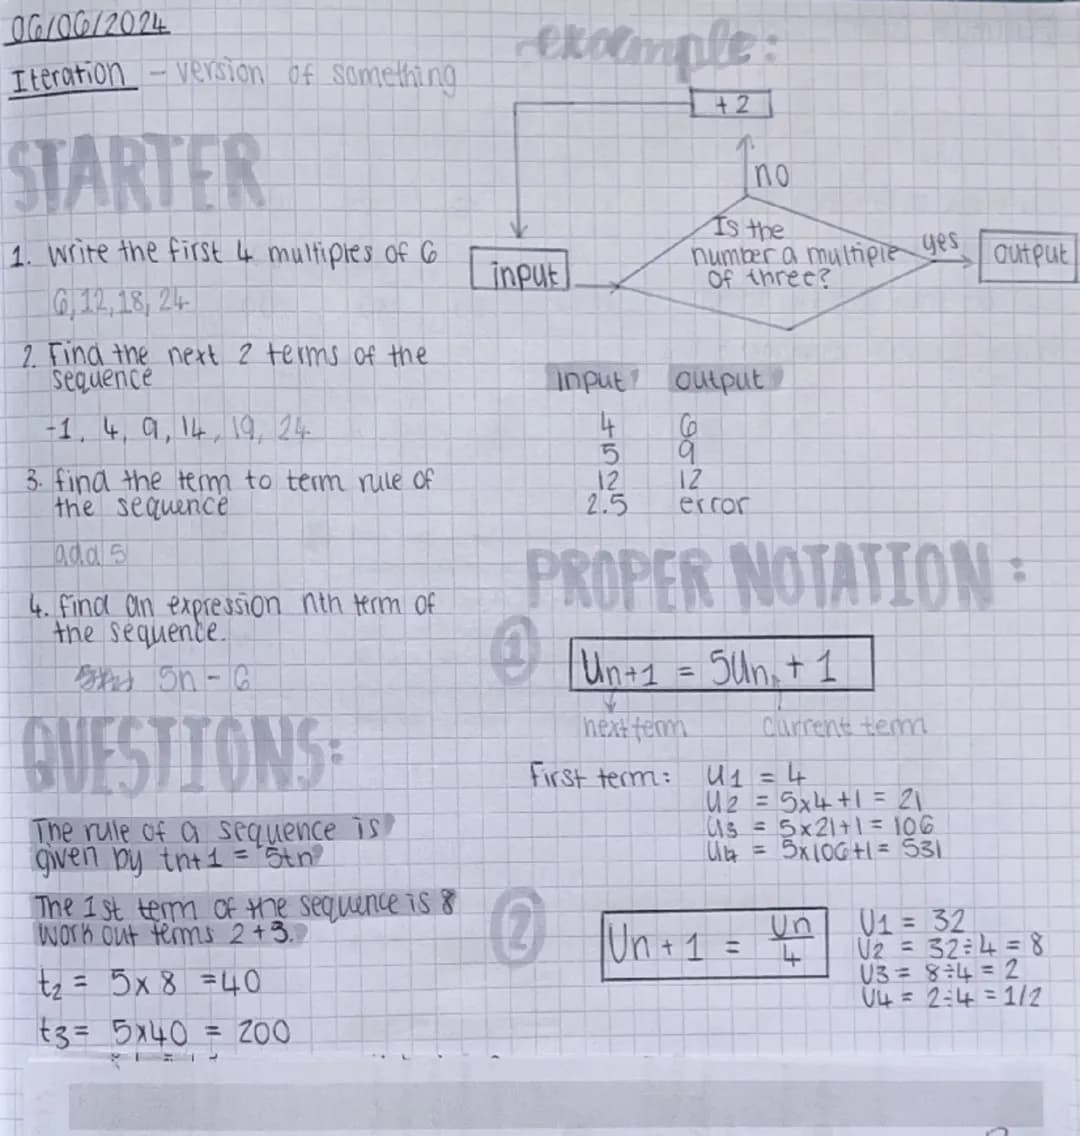 06/06/2024
Iteration - version of something
STARTER
1. Write the first 4 multiples of 6
6, 12, 18, 24
2. Find the next 2 terms of the
sequence
-1, 4, 9, 14, 19, 24
3. find the term to term rule of
the sequence
add 5
4. find an expression nth term of
the sequence.
5n - 6
QUESTIONS:
The rule of a sequence is
given by tn+1 = 5tn
The 1st term of the sequence is 8
Work out terms 2+3.
t₂ = 5x8 =40
t3= 5x40 = 200
example:
+2
no
Is the
number a multiple
of three?
yes
output
input
input output
4 6
5 9
12 12
2.5 error
PROPER NOTATION:
1
Un+1 = 5Un + 1
next term current term
First term: U1 = 4
U2 = 5x4+1 = 21
U3 = 5x21+1 = 106
U4 = 5x106+1 = 531
2
Un+1 = Un/4
U1 = 32
U2 = 32÷4 = 8
U3 = 8÷4 = 2
U4 = 2÷4 = 1/2